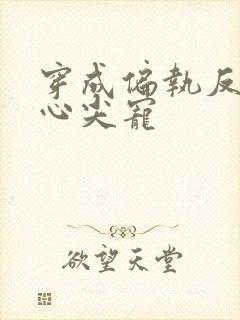 穿成偏執反
心尖寵
欲望天堂